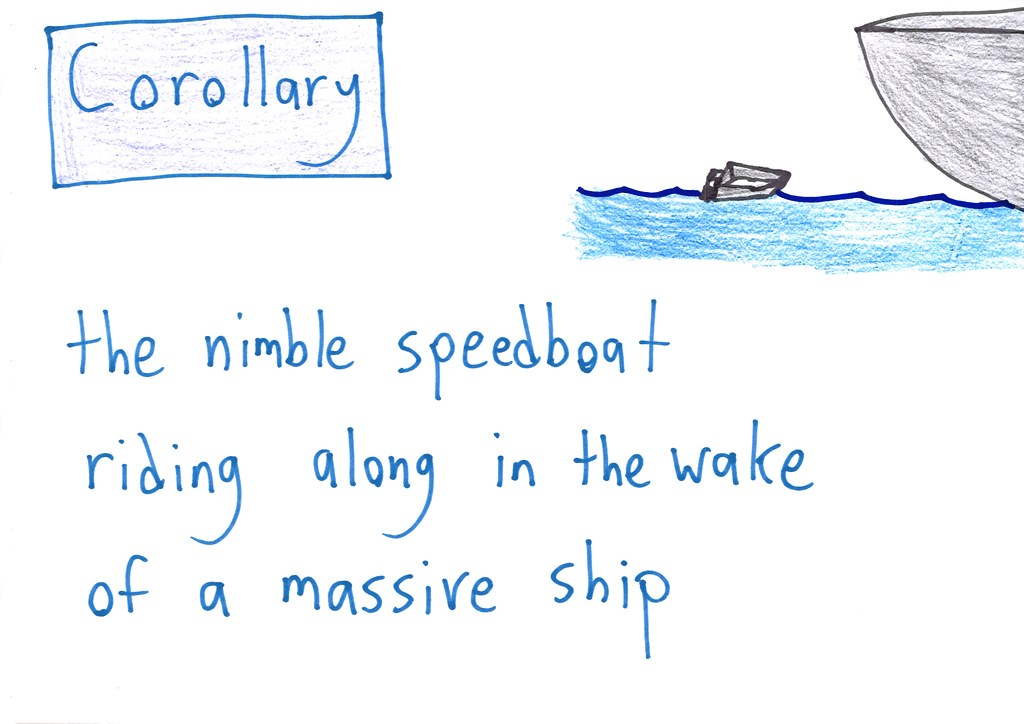 Corollary
the nimble speedboat
riding along in the wake
of a massive ship